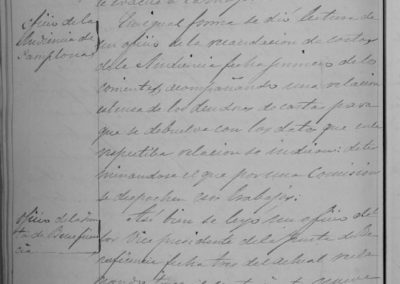 Oficio de la
Audiencia de
Pamplona
En igual forma se dió lectura de
un oficio de la recaudacion de costas
de la Audiencia fecha primero de los
corrientes, acompañando una relacion
de los deudores de costas para
que se debuelva con los datos que en la
respetiba relacion se indican: dete
minandose el que por una Comision
se despachen con trabajos.
Oficio de la Jun
ta de Benefi
cencia
Asi bien se leyo un oficio del
Sor Vice presidente de la Junta de Be
neficencia fecha tres del actual